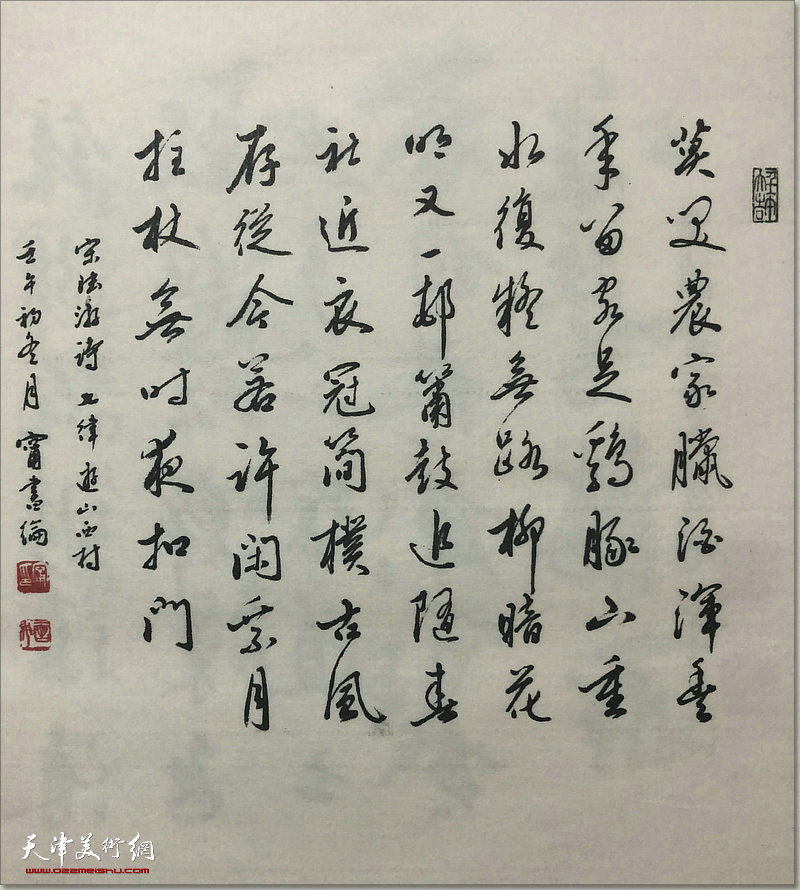 莫笑農家臘酒渾豐
年留客足鷄豚山重
水復疑無路柳暗花
明又一邨簫鼓追隨春
社近衣冠簡樸古風
存從今若許閑乘月
拄杖無时夜扣門
宋陸游詩七律遊山西村
壬午初冬月甯書綸
天津美術網
www.022meishu.com